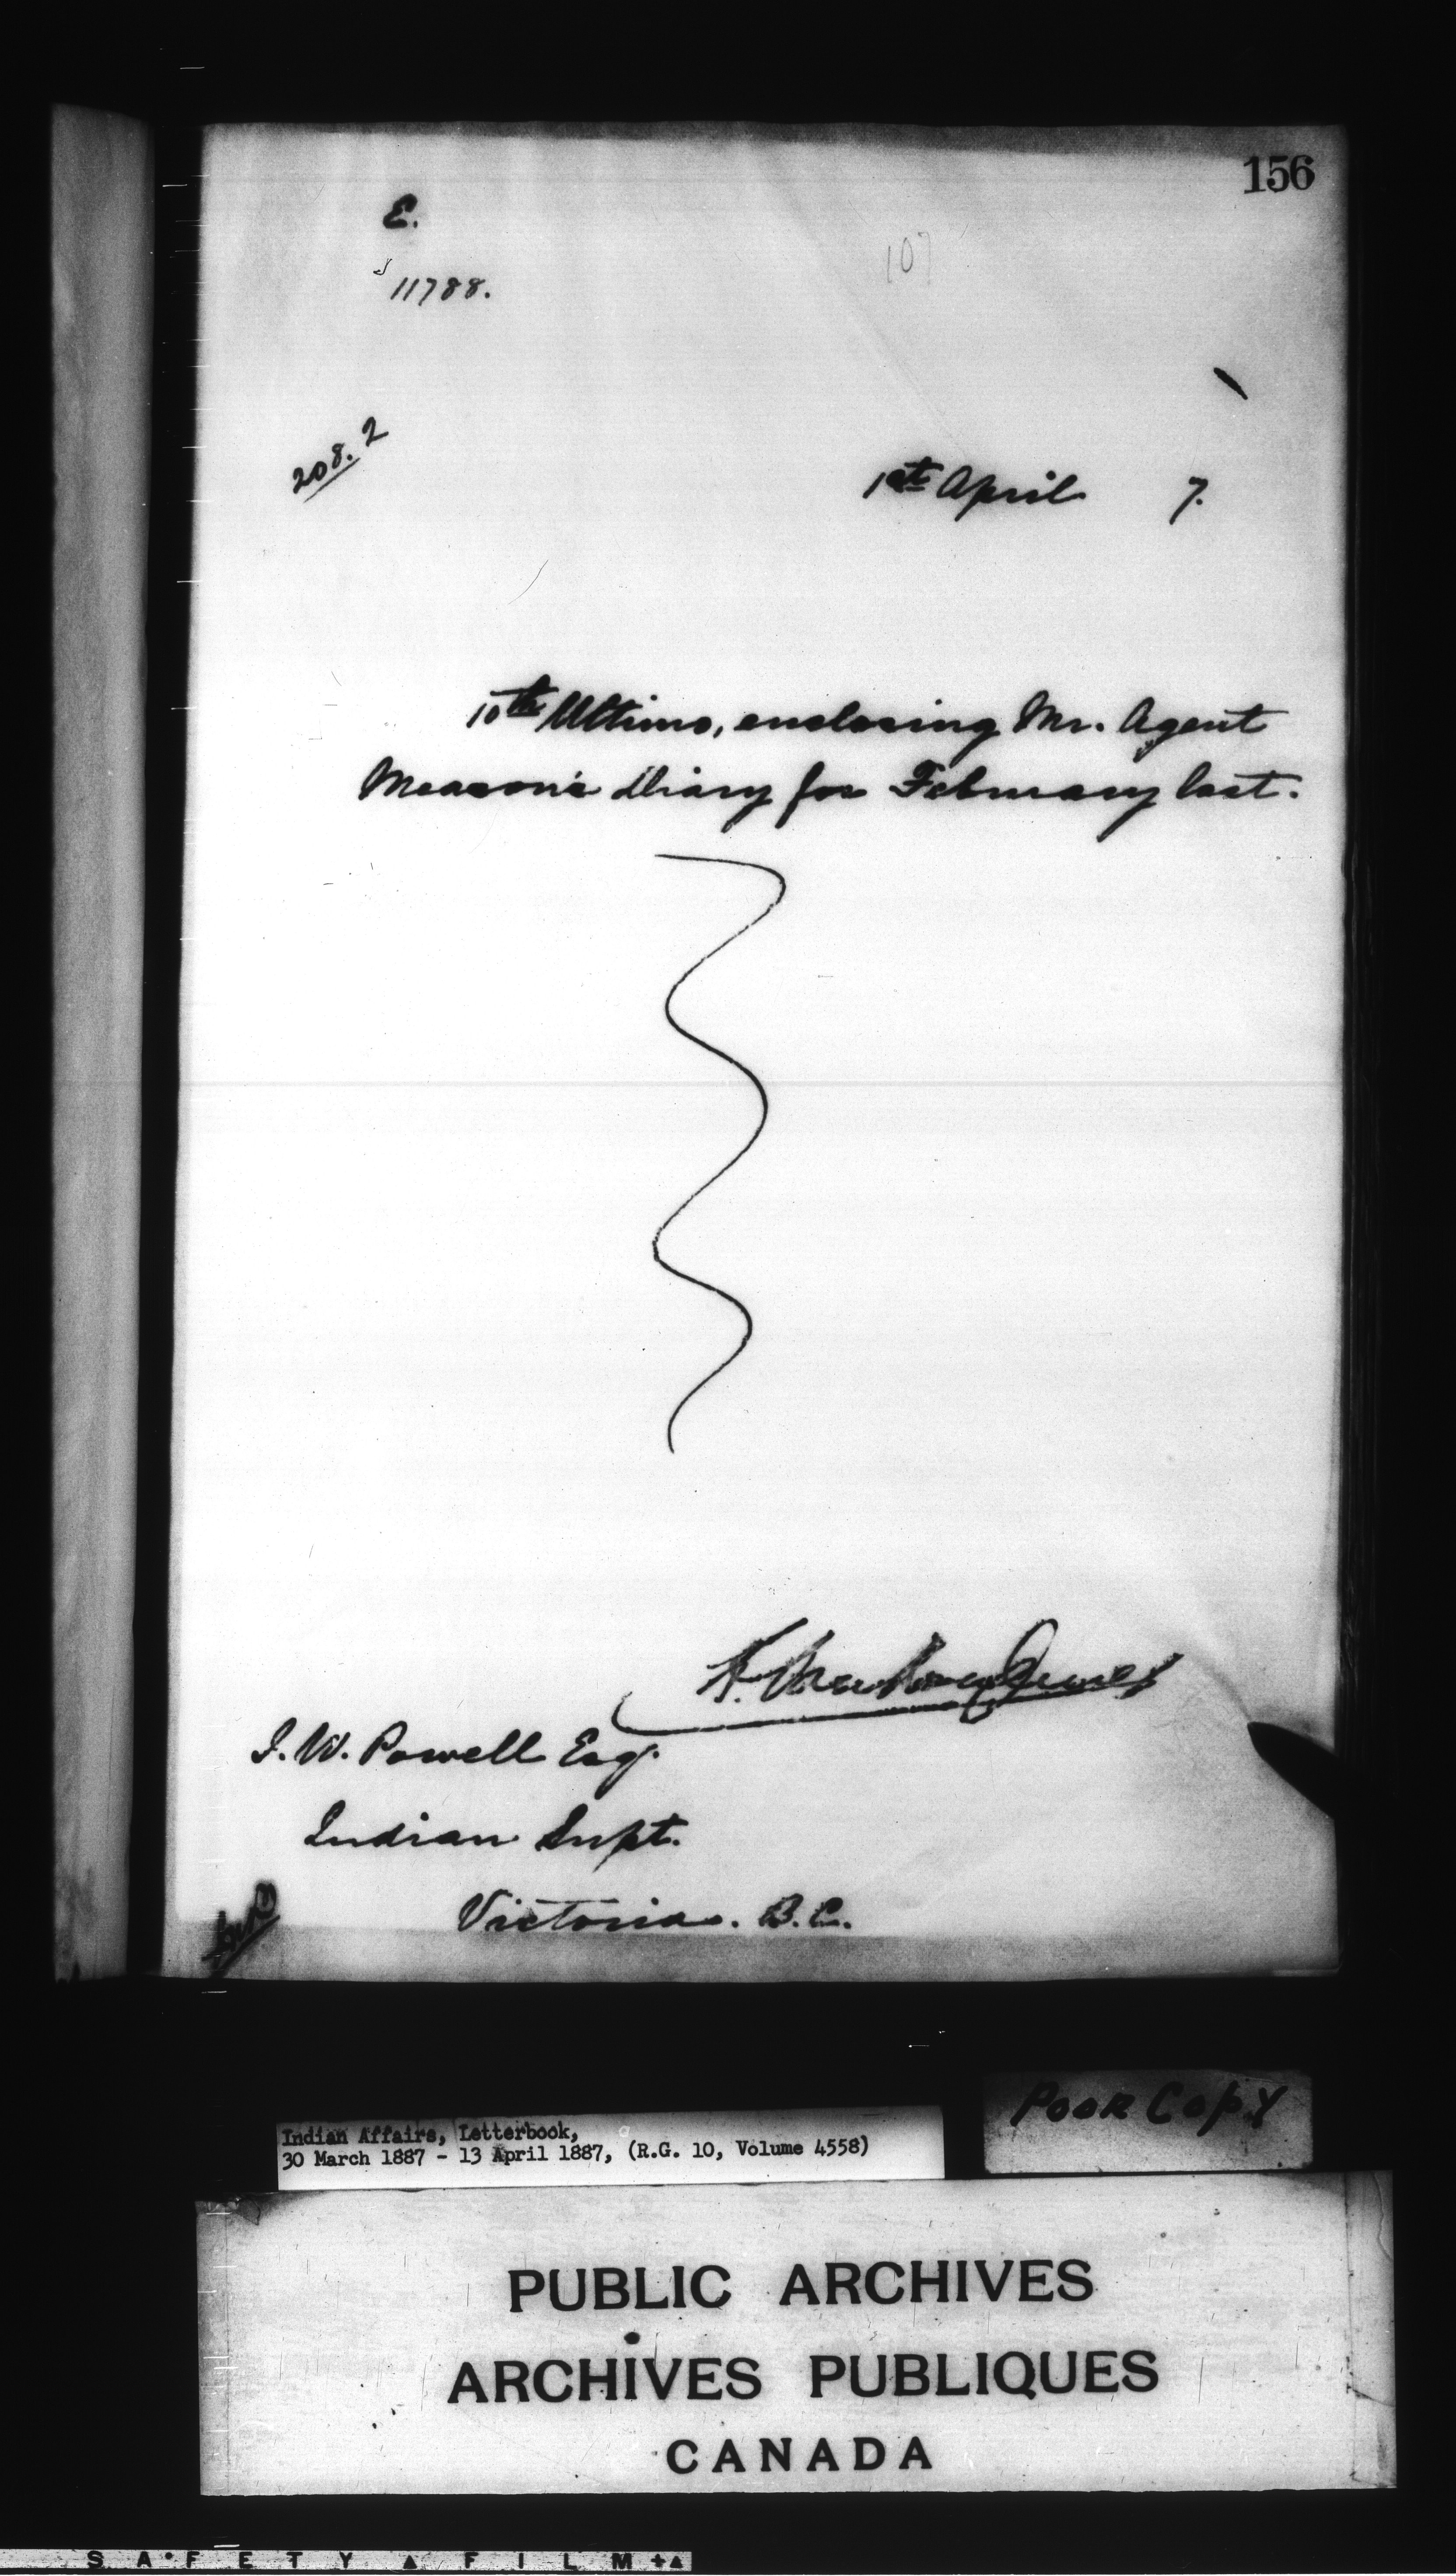 156
E.
11788.
107
208.2
1st April 7.
10th Ultimo, enclosing Mr. Agent
Meason's Diary for February last.
I. W. Powell Esq.
Indian Supt.
Victoria. B.C.
Poor Copy
Indian Affairs, Letterbook,
30 March 1887 - 13 April 1887, (R.G. 10, Volume 4558)
PUBLIC ARCHIVES
ARCHIVES PUBLIQUES
CANADA
SAFETY FILM